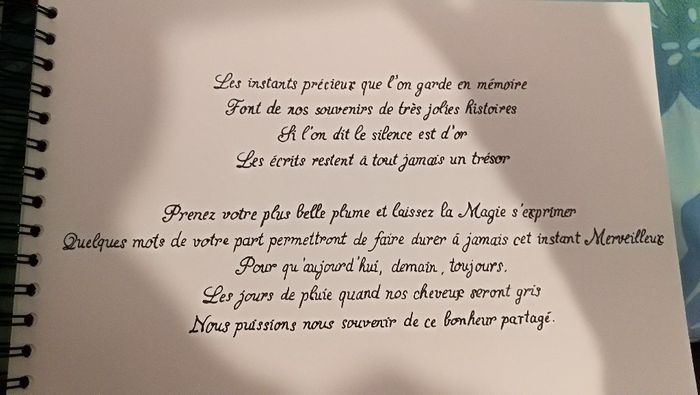 Les instants précieux que l'on garde en mémoire
Font de nos souvenirs de très jolies histoires
Si l'on dit le silence est d'or
Les écrits restent à tout jamais un trésor
Prenez votre plus belle plume et laissez la Magie s'exprimer
Quelques mots de votre part permettront de faire durer à jamais cet instant Merveilleux
Pour qu'aujourd'hui, demain, toujours.
Les jours de pluie quand nos cheveux seront gris
Nous puissions nous souvenir de ce bonheur partagé.